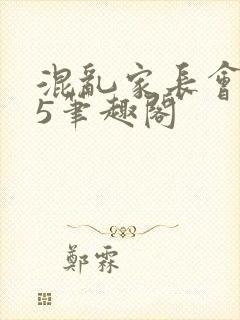 混亂家長會
5筆趣閣
鄭霖